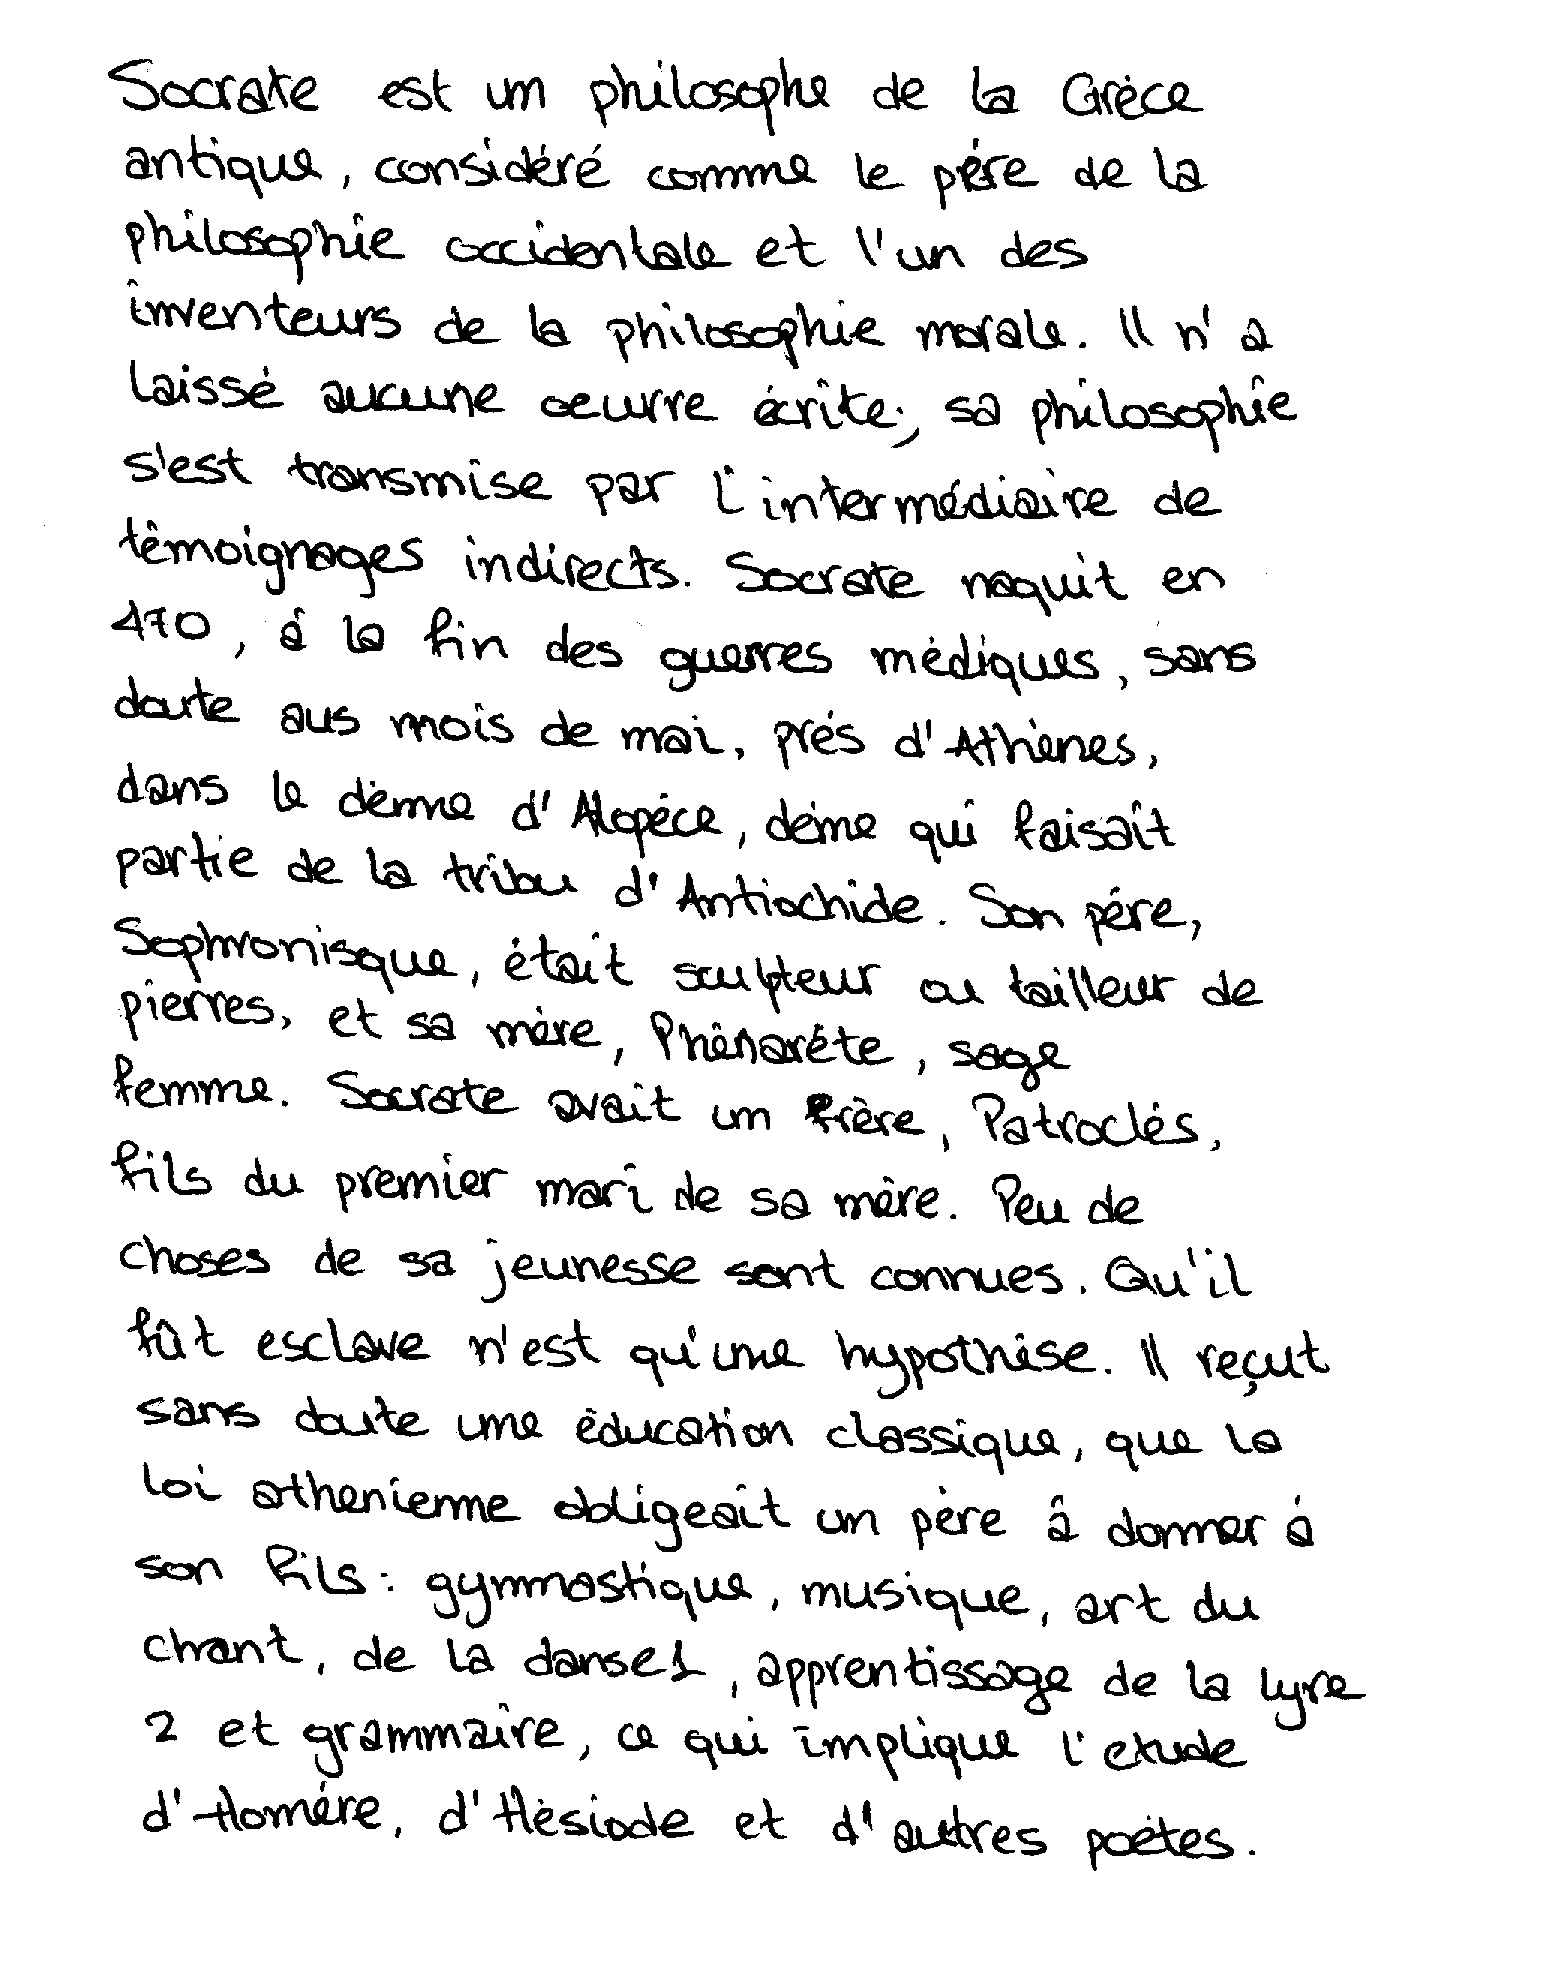 Socrate est um philosophe de la Grèce
antique, considéré comme le père de la
philosophie occidentale et l'un des
inventeurs de la philosophie morale. Il n'a
laissé aucune oeuvre écrite; sa philosophie
s'est transmise par l'intermédiaire de
témoignages indirects. Socrate naquit en
470, á la fin des guerres médiques, sans
doute aus mois de mai, prés d'Athènes,
dans le dème d'Alopéce, déme qui faisait
partie de la tribu d'Antiochide. Son pére,
Sophronisque, était sculpteur ou tailleur de
pierres, et sa mère, Phénaréte, sage
femme. Socrate avait um frère, Patroclés,
fils du premier mari de sa mère. Peu de
choses de sa jeunesse sont connues. Qu'il
fût esclave n'est qu'une hypothèse. Il reçut
sans doute une éducation classique, que la
loi athenienne obligeait un père â donner á
son fils: gymnastique, musique, art du
chant, de la danse1, apprentissage de la lyre
2 et grammaire, ce qui implique l'etude
d'Homére, d'Hèsiode et d'autres poètes.